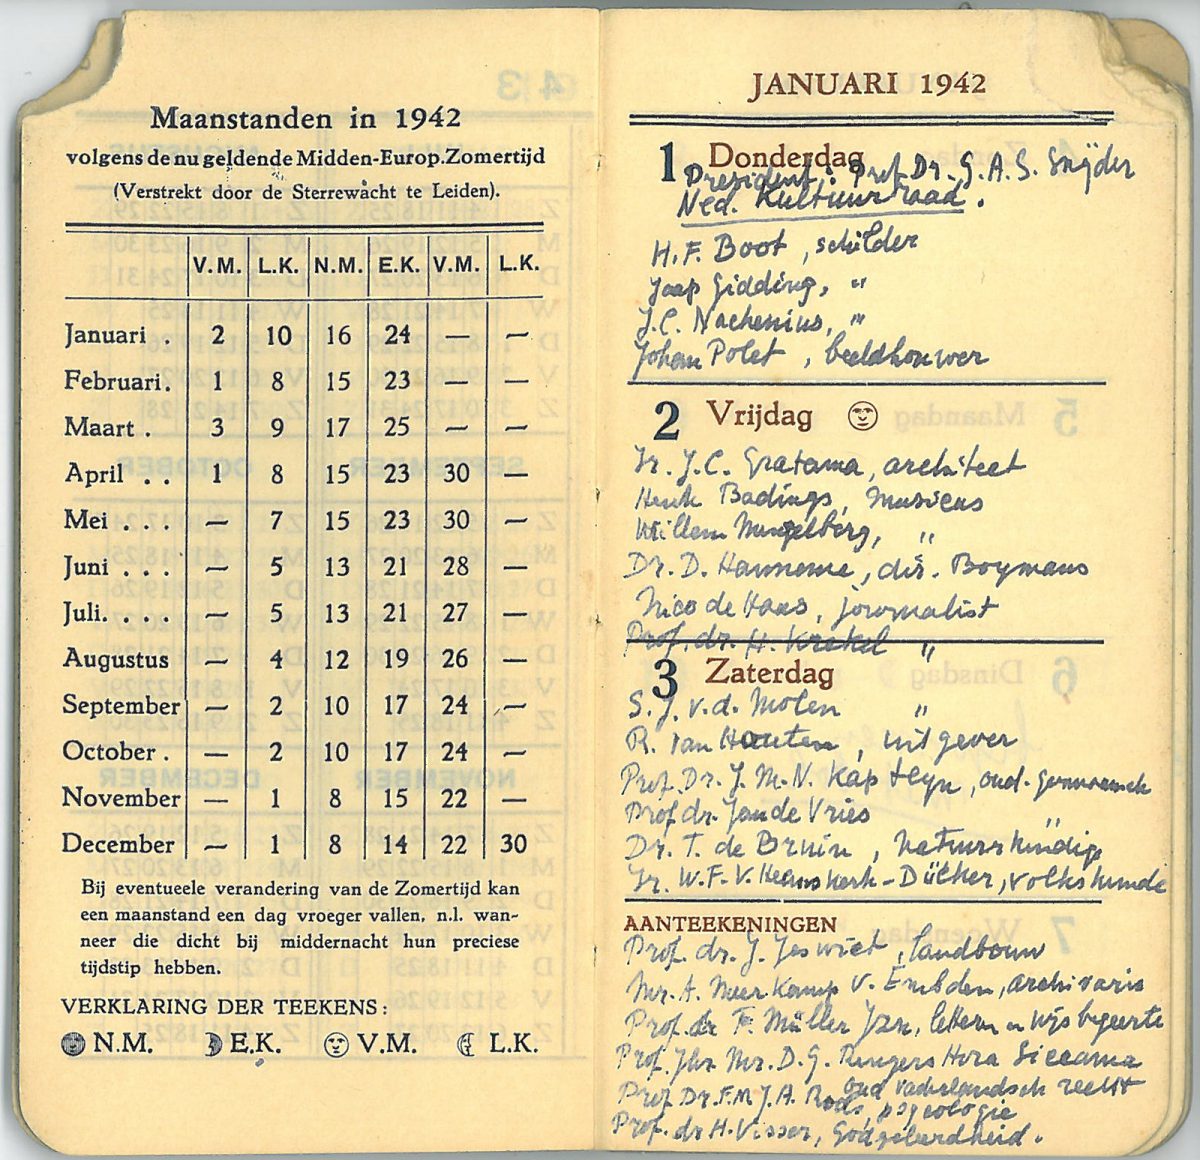 Maanstanden in 1942
volgens de nu geldende Midden-Europ. Zomertijd
(Verstrekt door de Sterrewacht te Leiden).
V.M. L.K. N.M. E.K. V.M. L.K.
Januari . 2 10 16 24 — —
Februari. 1 8 15 23 — —
Maart . 3 9 17 25 — —
April . . 1 8 15 23 30 —
Mei . . . — 7 15 23 30 —
Juni . . . — 5 13 21 28 —
Juli. . . . — 5 13 21 27 —
Augustus — 4 12 19 26 —
September — 2 10 17 24 —
October . — 2 10 17 24 —
November — 1 8 15 22 —
December — 1 8 14 22 30
Bij eventueele verandering van de Zomertijd kan
een maanstand een dag vroeger vallen, n.l. wan-
neer die dicht bij middernacht hun preciese
tijdstip hebben.
VERKLARING DER TEEKENS:
N.M. E.K. V.M. L.K.
JANUARI 1942
1 Donderdag
President: Prof. Dr. G.A.S. Snijder
Ned. Kultuurraad.
H.F. Boot, schilder
Jaap Gidding, "
J.C. Nachenius, "
Johan Polet, beeldhouwer
2 Vrijdag
Ir. J.C. Gratama, architect
Henk Badings, musicus
Willem Mengelberg, "
Dr. D. Hannema, dir. Boymans
Nico de Haas, journalist
Prof. dr. H. Krekel "
3 Zaterdag
S.J. v.d. Molen "
R. van Houten, uitgever
Prof. Dr. J.M.N. Kapteyn, oud-germaansch
Prof dr. Jan de Vries
Dr. T. de Bruin, natuurkundige
Ir. W.F.V. Heemskerk-Dücker, volkskunde
AANTEEKENINGEN
Prof. dr. J. Jeswiet, landbouw
Mr. A. Meerkamp v. Embden, archivaris
Prof. dr F. Müller Jzn, letteren en wijsbegeerte
Prof. Jhr. Mr. D.G. Rengers Hora Siccama
oud vaderlandsch recht
Prof Dr. F.M.J.A. Roels, psychologie
Prof. dr H. Visser, Godgeleerdheid.